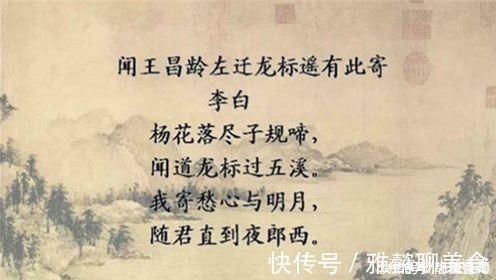 闻王昌龄左迁龙标遥有此寄
李白
杨花落尽子规啼，
闻道龙标过五溪。
我寄愁心与明月，
随君直到夜郎西。
快传号/雅懿聊美食